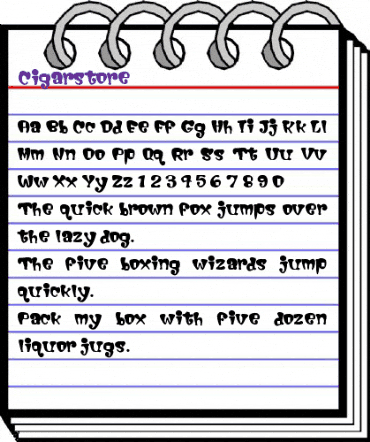 Cigarstore
Aa Bb Cc Dd Ee Ff Gg Hh Ii Jj Kk Ll
Mm Nn Oo Pp Qq Rr Ss Tt Uu Vv
Ww Xx Yy Zz 1 2 3 4 5 6 7 8 9 0
The quick brown fox jumps over
the lazy dog.
The five boxing wizards jump
quickly.
Pack my box with five dozen
liquor jugs.